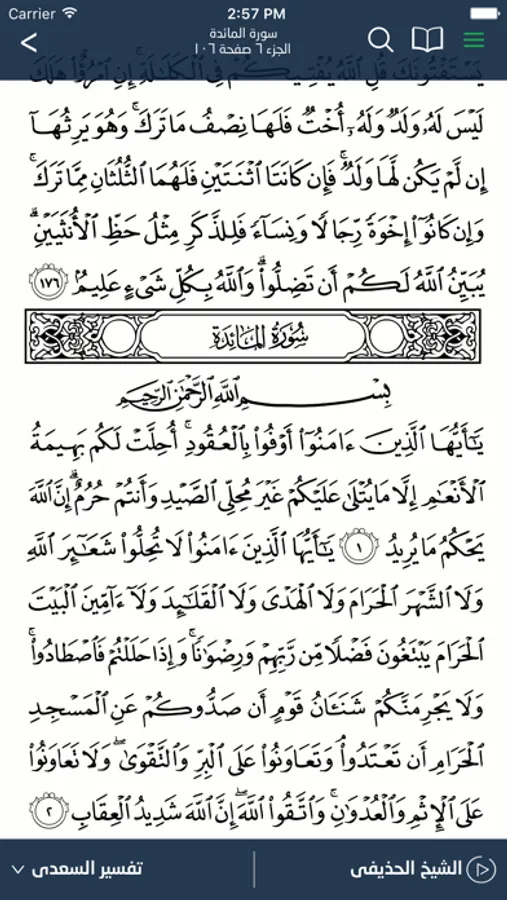 Carrier 2:57 PM
سورة المائدة
الجزء ٦ صفحة ١٠٦
يَسْتَفْتُونَكَ قُلِ ٱللَّهُ يُفْتِيكُمْ فِي ٱلْكَلَٰلَةِ ۚ إِنِ ٱمْرُؤٌا۟ هَلَكَ
لَيْسَ لَهُۥ وَلَدٌ وَلَهُۥٓ أُخْتٌ فَلَهَا نِصْفُ مَا تَرَكَ ۚ وَهُوَ يَرِثُهَآ
إِن لَّمْ يَكُن لَّهَا وَلَدٌ ۚ فَإِن كَانَتَا ٱثْنَتَيْنِ فَلَهُمَا ٱلثُّلُثَانِ مِمَّا تَرَكَ ۚ
وَإِن كَانُوٓا۟ إِخْوَةً رِّجَالًا وَنِسَآءً فَلِلذَّكَرِ مِثْلُ حَظِّ ٱلْأُنثَيَيْنِ ۗ
يُبَيِّنُ ٱللَّهُ لَكُمْ أَن تَضِلُّوا۟ ۗ وَٱللَّهُ بِكُلِّ شَىْءٍ عَلِيمٌۢ ١٧٦
سُورَةُ المَائدَةِ
بِسْمِ ٱللَّهِ ٱلرَّحْمَٰنِ ٱلرَّحِيمِ
يَٰٓأَيُّهَا ٱلَّذِينَ ءَامَنُوٓا۟ أَوْفُوا۟ بِٱلْعُقُودِ ۚ أُحِلَّتْ لَكُم بَهِيمَةُ
ٱلْأَنْعَٰمِ إِلَّا مَا يُتْلَىٰ عَلَيْكُمْ غَيْرَ مُحِلِّى ٱلصَّيْدِ وَأَنتُمْ حُرُمٌ ۗ إِنَّ ٱللَّهَ
يَحْكُمُ مَا يُرِيدُ ١ يَٰٓأَيُّهَا ٱلَّذِينَ ءَامَنُوا۟ لَا تُحِلُّوا۟ شَعَٰٓئِرَ ٱللَّهِ
وَلَا ٱلشَّهْرَ ٱلْحَرَامَ وَلَا ٱلْهَدْىَ وَلَا ٱلْقَلَٰٓئِدَ وَلَآ ءَآمِّينَ ٱلْبَيْتَ
ٱلْحَرَامَ يَبْتَغُونَ فَضْلًا مِّن رَّبِّهِمْ وَرِضْوَٰنًا ۚ وَإِذَا حَلَلْتُمْ فَٱصْطَادُوا۟ ۚ
وَلَا يَجْرِمَنَّكُمْ شَنَـَٔانُ قَوْمٍ أَن صَدُّوكُمْ عَنِ ٱلْمَسْجِدِ
ٱلْحَرَامِ أَن تَعْتَدُوا۟ ۘ وَتَعَاوَنُوا۟ عَلَى ٱلْبِرِّ وَٱلتَّقْوَىٰ ۖ وَلَا تَعَاوَنُوا۟
عَلَى ٱلْإِثْمِ وَٱلْعُدْوَٰنِ ۚ وَٱتَّقُوا۟ ٱللَّهَ ۖ إِنَّ ٱللَّهَ شَدِيدُ ٱلْعِقَابِ ٢
الشيخ الحذيفى
تفسير السعدى